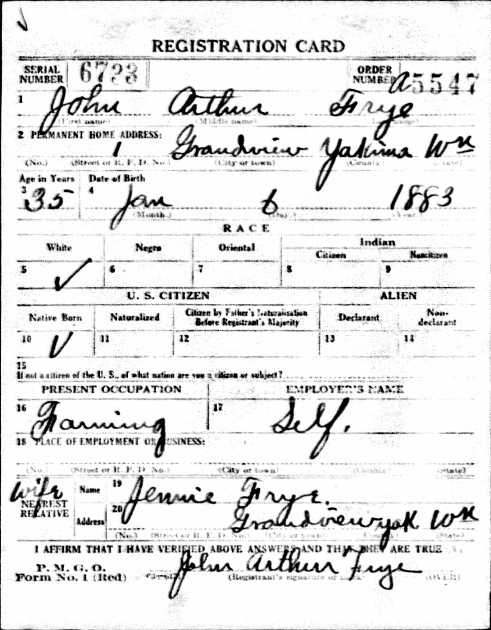 REGISTRATION CARD
SERIAL NUMBER 6723 ORDER NUMBER A5547
1 John Arthur Frye
(First name) (Middle name)
2 PERMANENT HOME ADDRESS:
1 Grandview Yakima Wn
(No.) (Street or R. F. D. No.) (City or town) (County) (State)
Age in Years Date of Birth
3 35 4 Jan 6 1883
(Month.) (Day.) (Year.)
RACE
White Negro Oriental Indian
Citizen Noncitizen
5 ✓ 6 7 8 9
U. S. CITIZEN ALIEN
Native Born Naturalized Citizen by Father's Naturalization Before Registrant's Majority Declarant Non-declarant
10 ✓ 11 12 13 14
15
If not a citizen of the U. S., of what nation are you a citizen or subject?
PRESENT OCCUPATION EMPLOYER'S NAME
16 Farming 17 Self.
18 PLACE OF EMPLOYMENT OR BUSINESS:
(No.) (Street or R. F. D. No.) (City or town) (County) (State)
Wife NEAREST RELATIVE Name 19 Jennie Frye.
Address 20 Grandview Yak Wn
(No.) (Street or R. F. D. No.) (City or town) (State)
I AFFIRM THAT I HAVE VERIFIED ABOVE ANSWERS AND THAT THEY ARE TRUE
P. M. G. O.
Form No. 1 (Red) John Arthur Frye
(Registrant's signature or mark) (OVER)